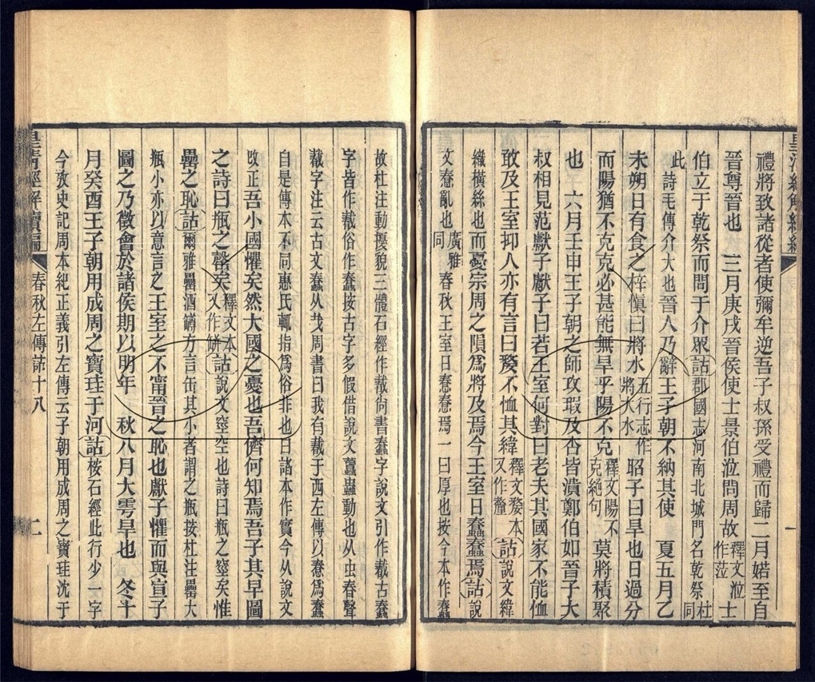 皇清經解續編
禮將致諸從者使彌牟逆吾子叔孫受禮而歸二月婼至自
晉尊晉也　三月庚戌晉侯使士景伯涖問周故釋文涖作莅士
伯立于乾祭而問于介眾詁郡國志河南北城門名乾祭杜同
此詩毛傳介大也晉人乃辭王子朝不納其使　夏五月乙
未朔日有食之梓慎曰將水五行志作將大水昭子曰旱也日過分
而陽猶不克克必甚能無旱乎陽不克釋文陽不克絕句莫將積聚
也　六月壬申王子朝之師攻瑕及杏皆潰鄭伯如晉子大
叔相見范獻子獻子曰若王室何對曰老夫其國家不能恤
敢及王室抑人亦有言曰嫠不恤其緯釋文嫠本又作釐詁說文緯
織橫絲也而憂宗周之隕爲將及焉今王室日蠢蠢焉詁說
文惷亂也廣雅同春秋王室日惷惷焉一曰厚也按今本作蠢
故杜注動擾貌三體石經作𢧵尚書蠢字說文引作𢧵古蠢
字皆作𢧵俗作蠢按古字多假借說文蠢蟲動也从䖵春聲
𢧵字注云古文蠢从𢦏周書曰我有𢧵于西左傳以惷爲蠢
自是傳本不同惠氏輒指爲俗非也曰諸本作實今从說文
改正吾小國懼矣然大國之憂也吾儕何知焉吾子其早圖
之詩曰瓶之罄矣釋文本又作缾詁說文窒空也詩曰瓶之窒矣惟
罍之恥詁爾雅罍酒罇方言缶其小者謂之瓶按杜注罍大
瓶小亦以意言之王室之不甯晉之恥也獻子懼而與宣子
圖之乃徵會於諸侯期以明年　秋八月大雩旱也　冬十
月癸酉王子朝用成周之寶珪于河詁按石經此行少一字
今攷史記周本紀正義引左傳云子朝用成周之寶珪沈于
皇清經解續編　春秋左傳詁十八　二